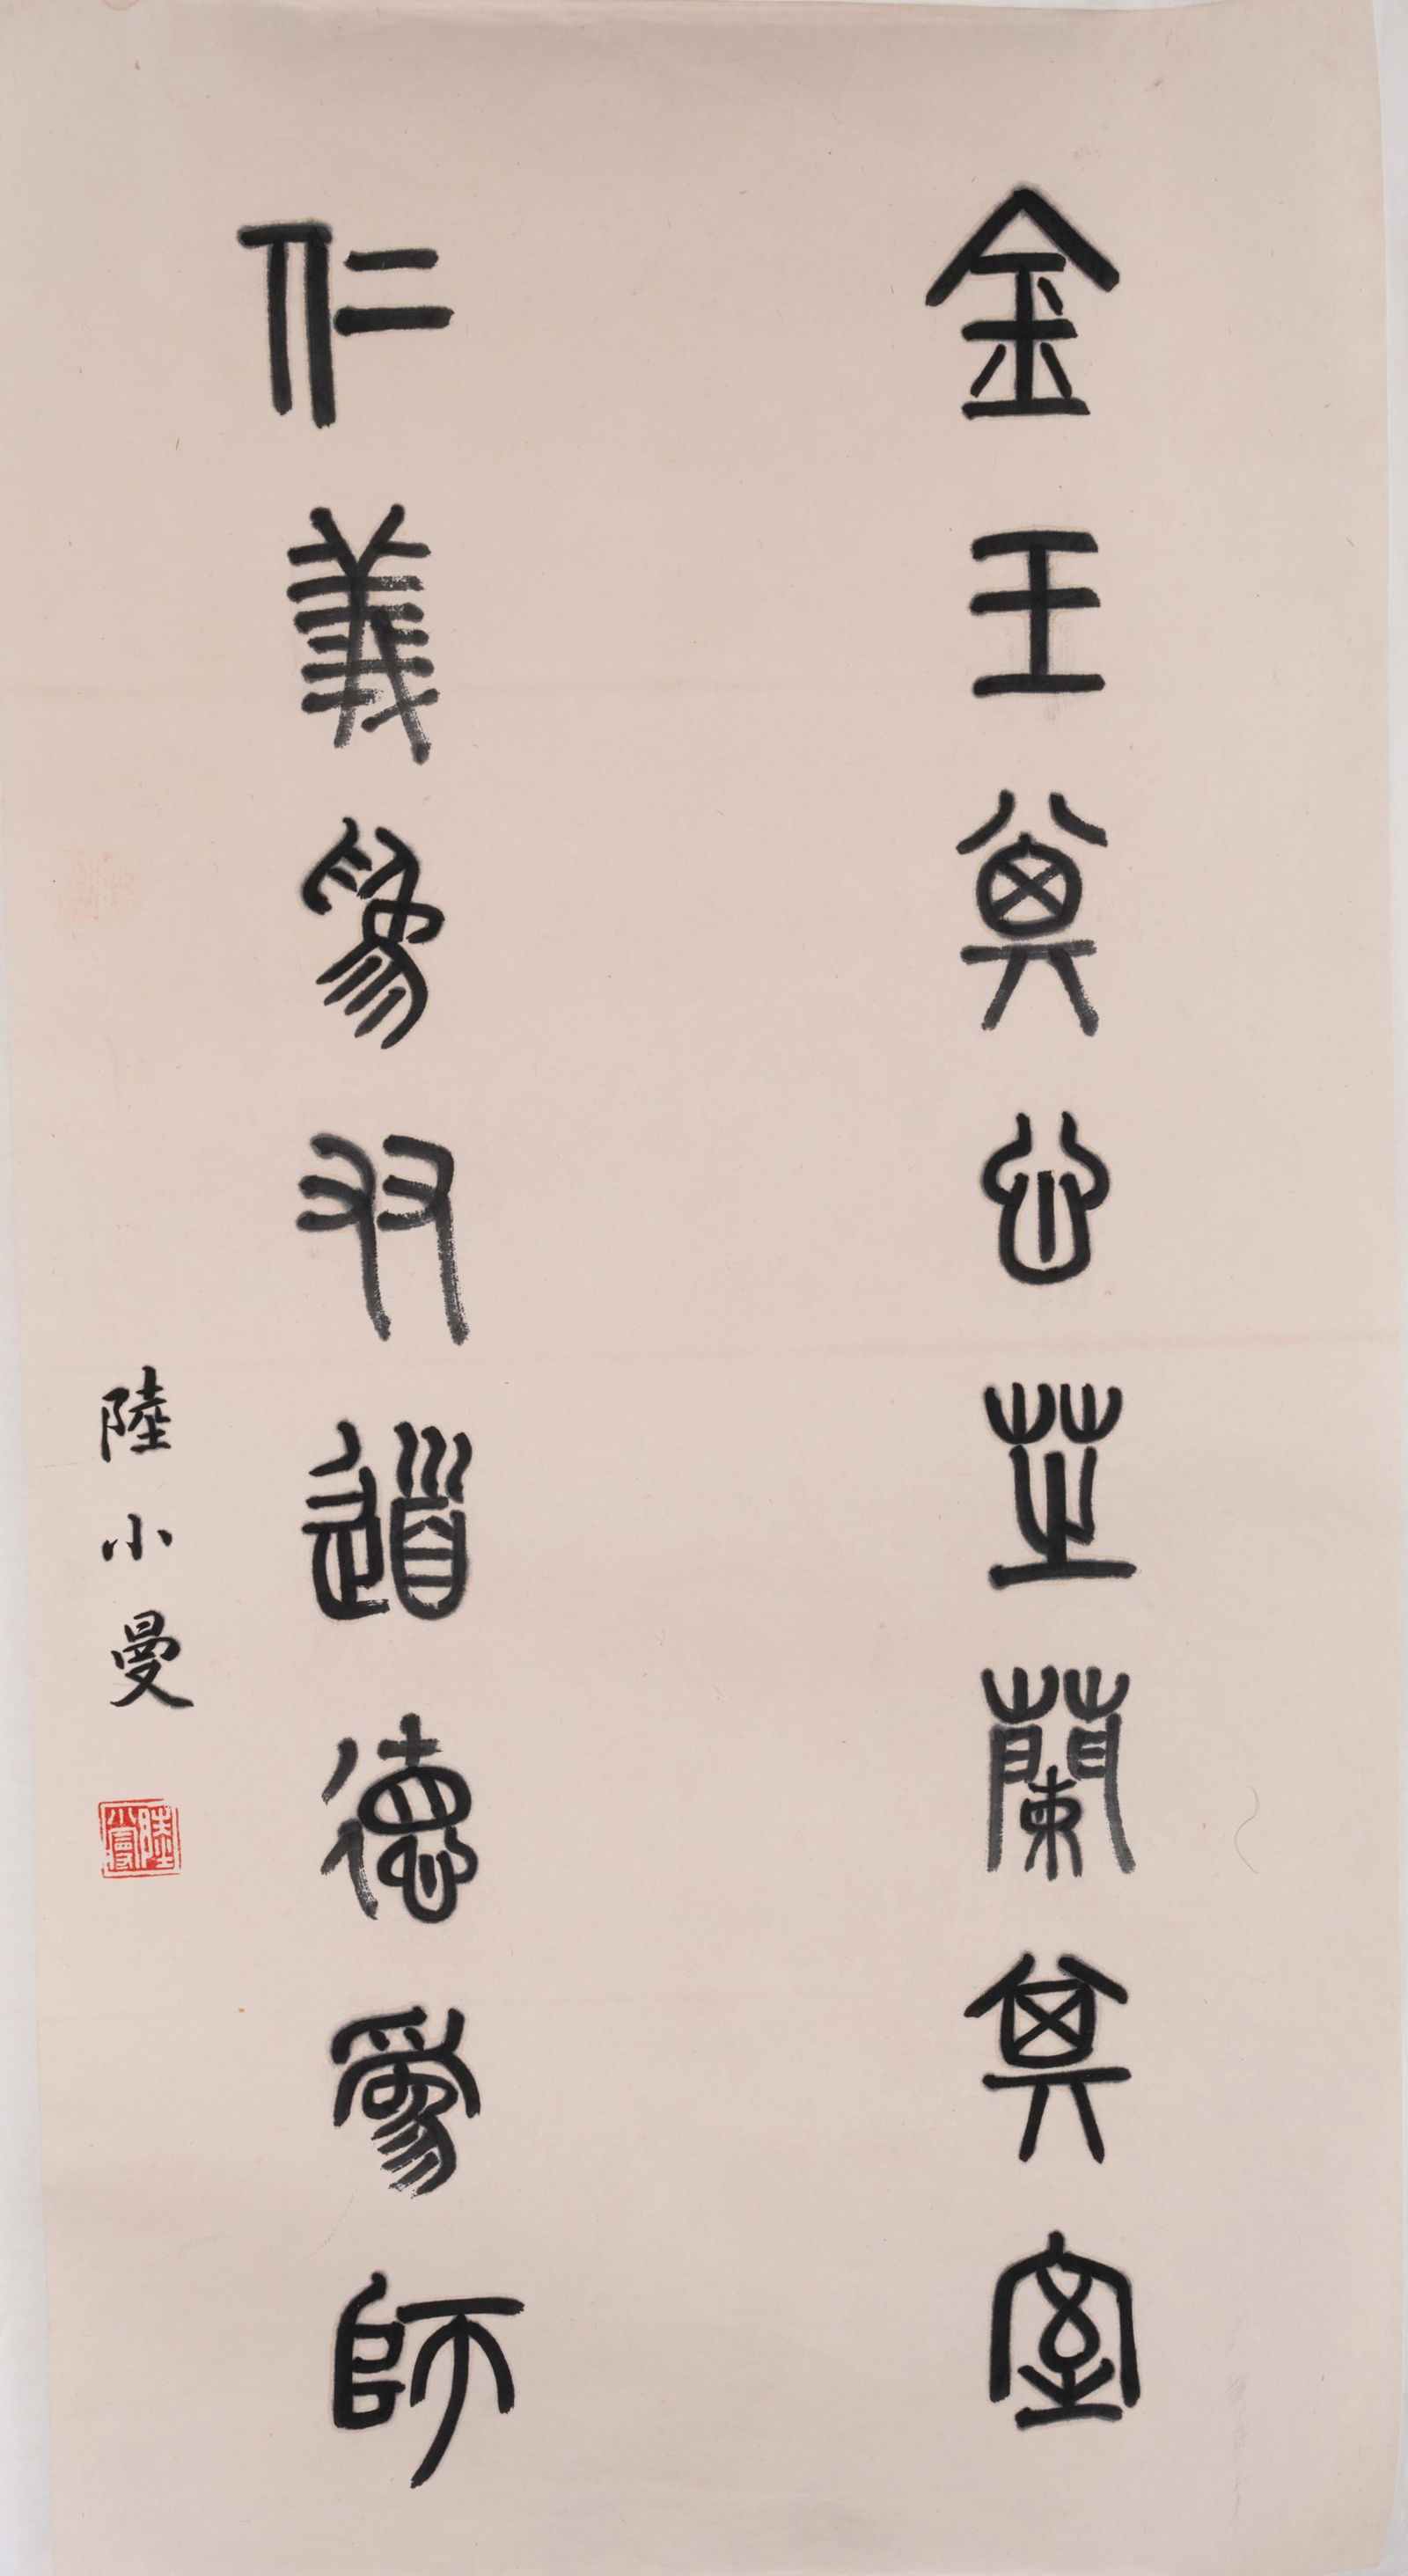 金玉其心芝蘭其室
仁義為友道德為師
陸小曼
陸小曼